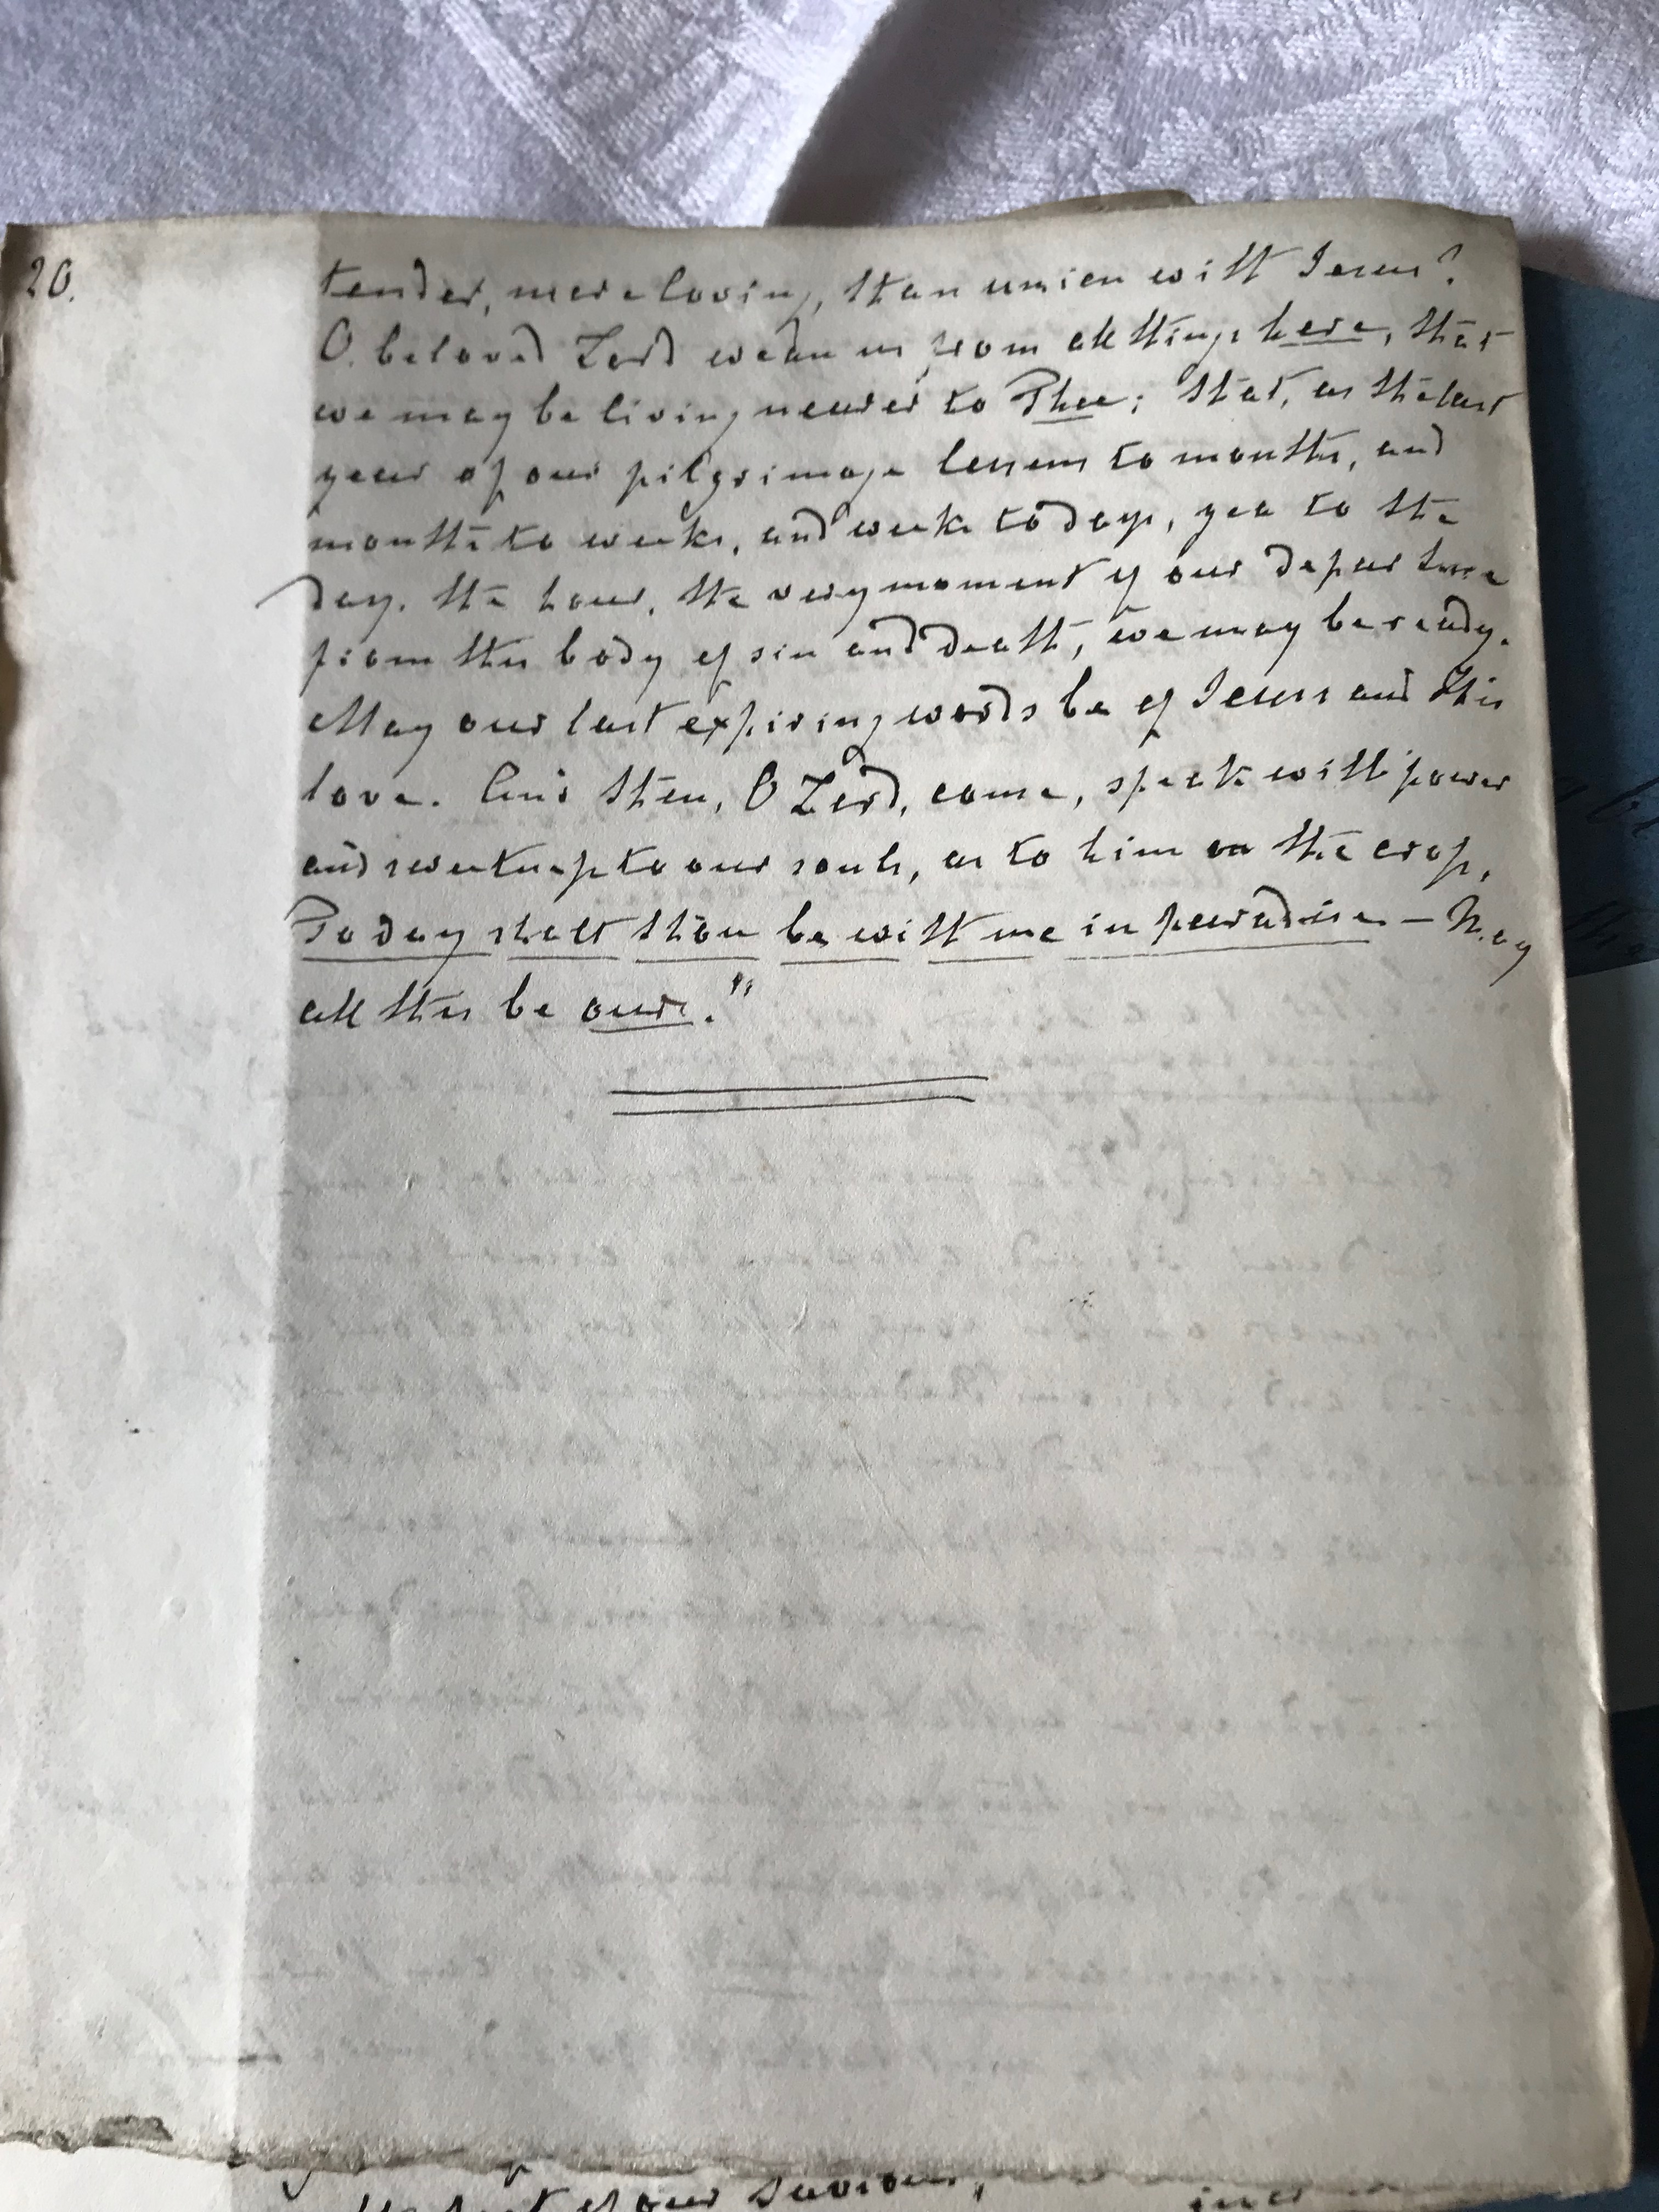 20.
tender, more loving, than union with Jesus?
O. beloved Lord wean us from all things here, that
we may be living nearer to Thee; that, as the last
year of our pilgrimage lessens to months, and
months to weeks, and weeks to days, yea to the
day. the hour, the very moment of our departure
from this body of sin and death, we may be ready.
May our last expiring words be of Jesus and His
love. And then, O Lord, come, speak with power
and sweetness to our souls, as to him on the cross,
To day shalt thou be with me in paradise – May
all this be ours."
of our Saviour,